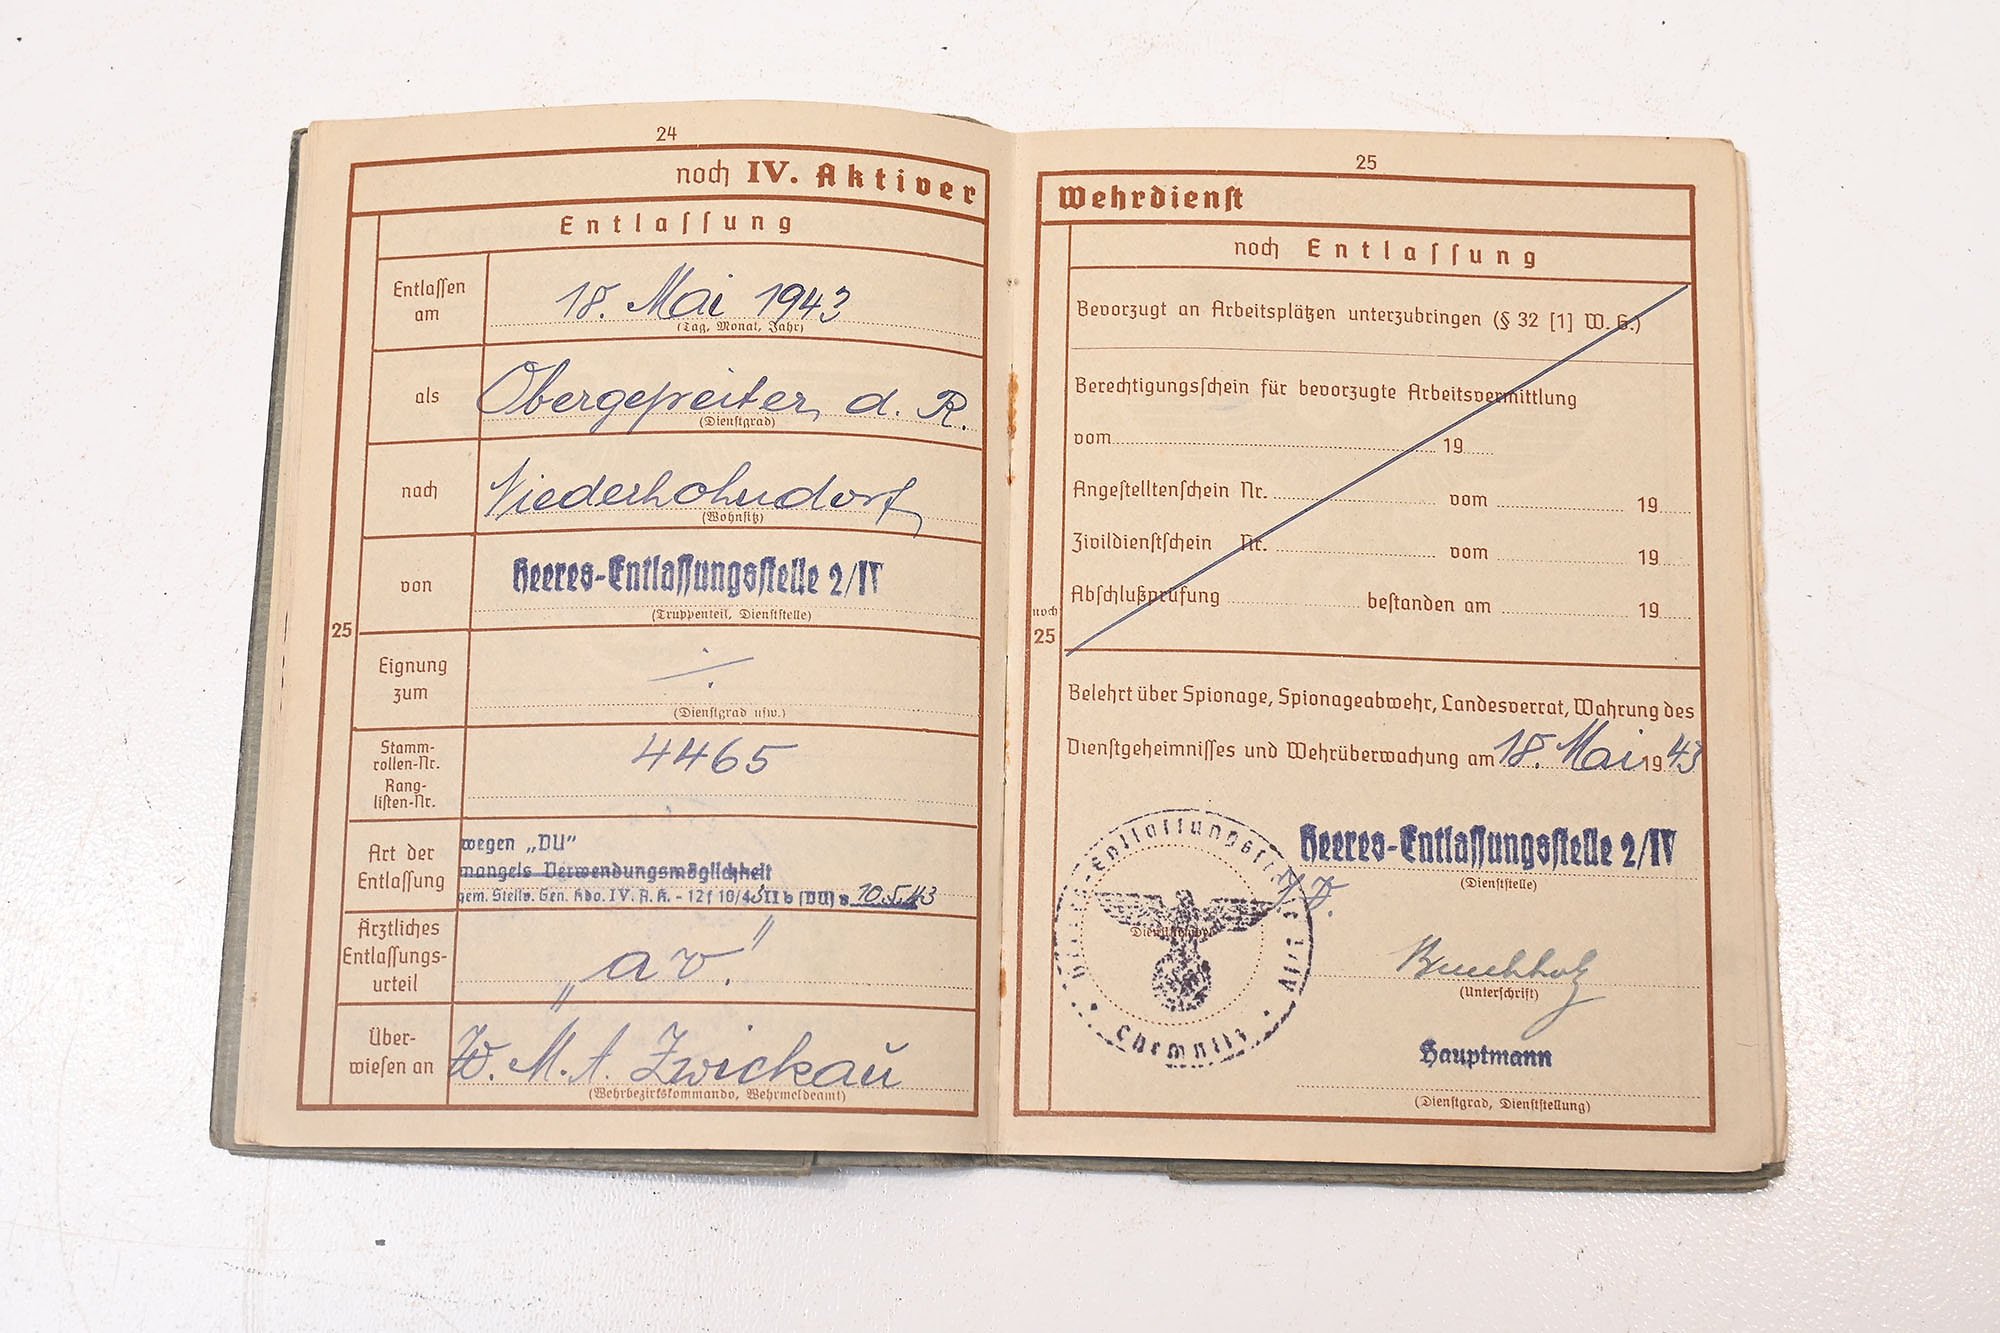 24
noch IV. Aktiver
Entlassung
Entlassen am
18. Mai 1943
(Tag, Monat, Jahr)
als
Obergefreiter d. R.
(Dienstgrad)
nach
Niederhohndorf
(Wohnsitz)
von
Heeres-Entlassungsstelle 2/IV
(Truppenteil, Dienststelle)
25
Eignung zum
(Dienstgrad usw.)
Stamm-
rollen-Nr.
Rang-
listen-Nr.
4465
Art der
Entlassung
wegen „DU"
mangels Verwendungsmöglichkeit
gem. Stellv. Gen. Kdo. IV. A. K. - 12 f 10/43 II b (DU) v 10.5.43
Ärztliches
Entlassungs-
urteil
„av."
Über-
wiesen an
W. M. A. Zwickau
(Wehrbezirkskommando, Wehrmeldeamt)
25
Wehrdienst
noch Entlassung
Bevorzugt an Arbeitsplätzen unterzubringen (§ 32 [1] W. G.)
Berechtigungsschein für bevorzugte Arbeitsvermittlung
vom 19
Angestelltenschein Nr. vom 19
Zivildienstschein Nr. vom 19
Abschlußprüfung bestanden am 19
noch
25
Belehrt über Spionage, Spionageabwehr, Landesverrat, Wahrung des
Dienstgeheimnisses und Wehrüberwachung am 18. Mai 1943
Heeres-Entlassungsstelle 2/IV
(Dienststelle)
Chemnitz
Buchholz
(Unterschrift)
Hauptmann
(Dienstgrad, Dienststellung)